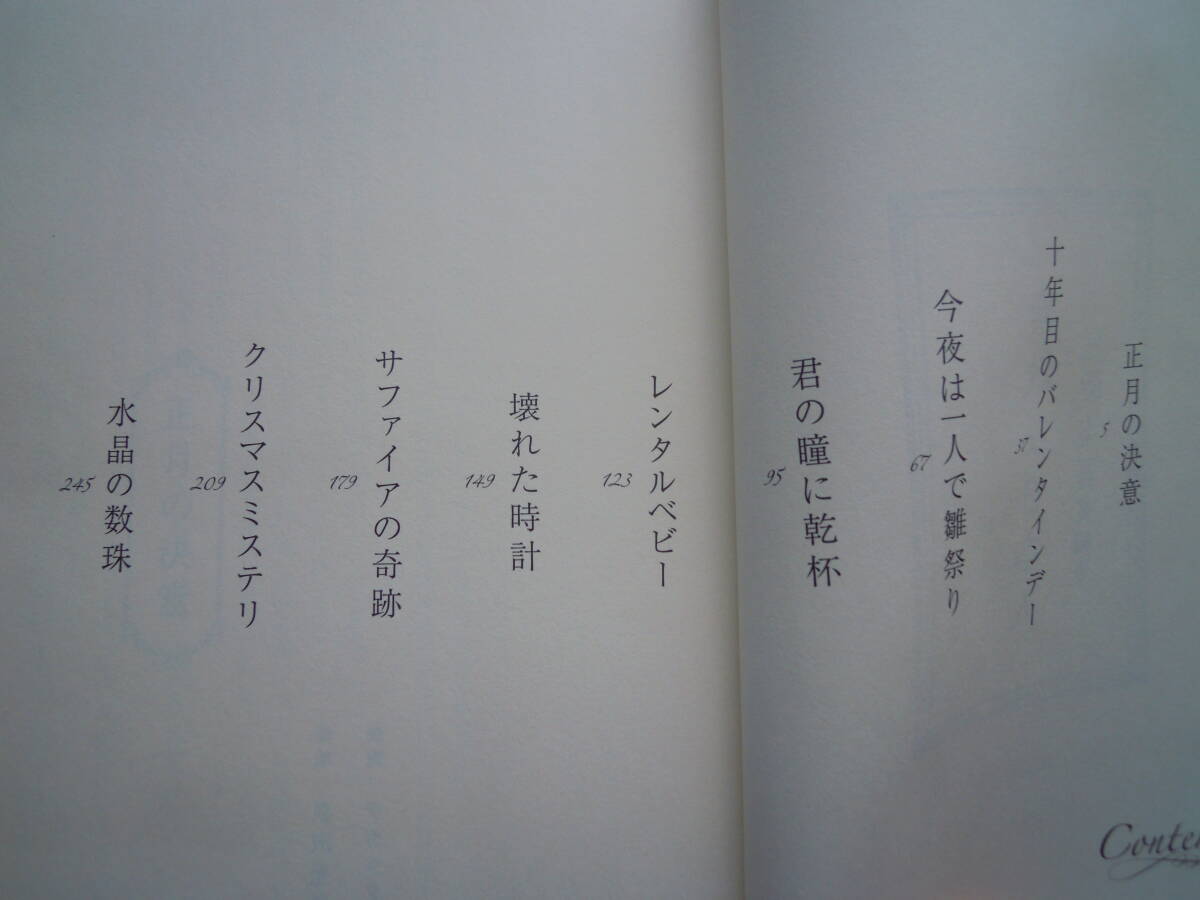 正月の決意
5
十年目のバレンタインデー
37
今夜は一人で雛祭り
67
君の瞳に乾杯
95
レンタルベビー
123
壊れた時計
149
サファイアの奇跡
179
クリスマスミステリ
209
水晶の数珠
245